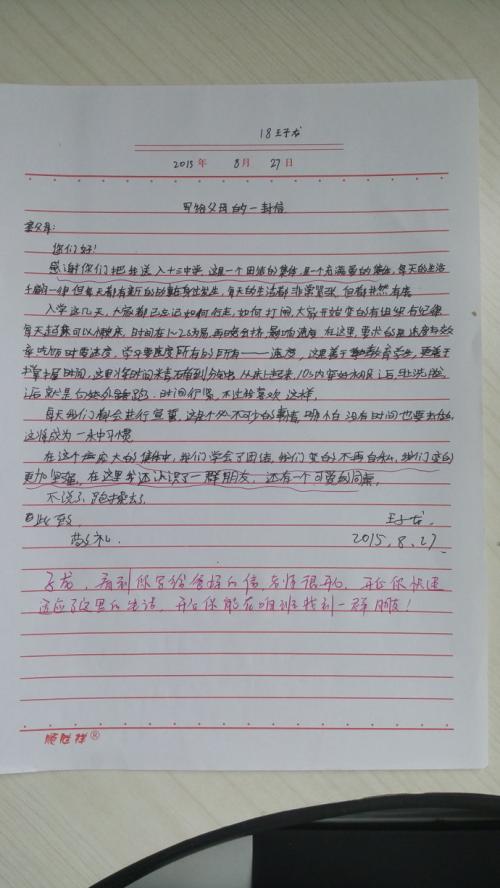 18 王子龙
2015年 8月 27日
写给父母的一封信
亲父母:
您们好!
感谢你们把我送入十三中学,这是一个团结的集体,是一个充满爱的集体,每天的生活
千篇一律但每天都有新的动力在身边发生,每天的生活都非常紧张,但都井然有序
入学这几天,大家都已忘记如何行走,如何打闹,大家开始变的有组织有纪律
每天起床可以铺床,时间在1~2分为易,再晚会挤,影响速度,在这里,要求的是速度与效
率吃饭时要速度,学习要速度所有的所有——速度,这里善于教育学生,更善于
掌握时间,这里将时间来看
后就是 时间仍紧,不过我喜欢这样.
每天我们都会进行宣誓,这是个必不可少的事情,哪怕没有时间也要去做,
这将成为一永中习惯.
在这个温度大的集体中,我们学会了团结,我们变的不再自私,我们变的
更加坚强,在这里我还认识了一群朋友,还有一个可爱的同桌,
不说了,跑操去了.
此致 王子龙.
敬礼. 2015.8.27
子龙,看到你写给爸妈的信,老师很开心,开心你快速
适应了这里的生活,开心你能在咱班找到一群朋友!
顺胜祥®